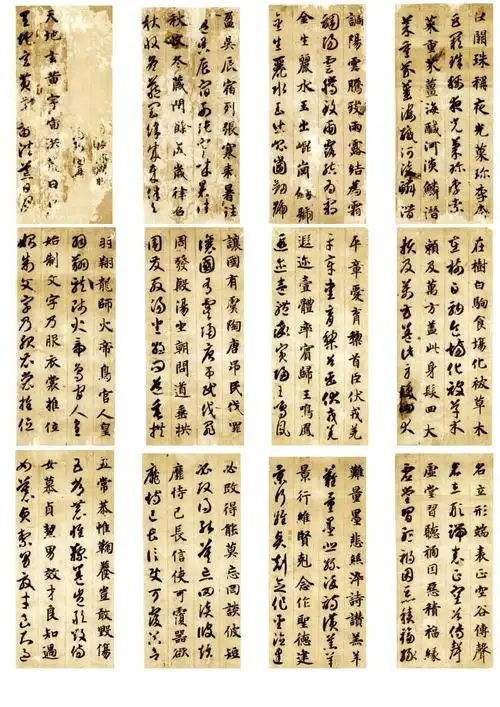 天地玄黃宇宙洪荒日月
天地玄黃宇宙洪荒日月
盈昃辰宿列張寒來暑往
盈昃辰宿列張寒來暑往
秋收冬藏閏餘成歲律呂
秋收冬藏閏餘成歲律呂
調陽雲騰致雨露結為霜
調陽雲騰致雨露結為霜
金生麗水玉出崑崗劍號
金生麗水玉出崑崗劍號
巨闕珠稱夜光菓珍李柰
巨闕珠稱夜光菓珍李柰
菜重芥薑海醎河淡鱗潛
菜重芥薑海醎河淡鱗潛
羽翔龍師火帝鳥官人皇
羽翔龍師火帝鳥官人皇
始制文字乃服衣裳推位
始制文字乃服衣裳推位
讓國有虞陶唐弔民伐罪
讓國有虞陶唐弔民伐罪
周發殷湯坐朝問道垂拱
周發殷湯坐朝問道垂拱
平章愛育黎首臣伏戎羌
平章愛育黎首臣伏戎羌
遐迩壹體率賓歸王鳴鳳
遐迩壹體率賓歸王鳴鳳
在樹白駒食場化被草木
在樹白駒食場化被草木
賴及萬方盖此身髮四大
賴及萬方盖此身髮四大
五常恭惟鞠養豈敢毀傷
五常恭惟鞠養豈敢毀傷
女慕貞絜男效才良知過
女慕貞絜男效才良知過
必改得能莫忘罔談彼短
必改得能莫忘罔談彼短
靡恃己長信使可覆器欲
靡恃己長信使可覆器欲
難量墨悲絲淬詩讚羔羊
難量墨悲絲淬詩讚羔羊
景行維賢剋念作聖德建
景行維賢剋念作聖德建
名立形端表正空谷傳聲
名立形端表正空谷傳聲
虛堂習聽禍因惡積福緣
虛堂習聽禍因惡積福緣